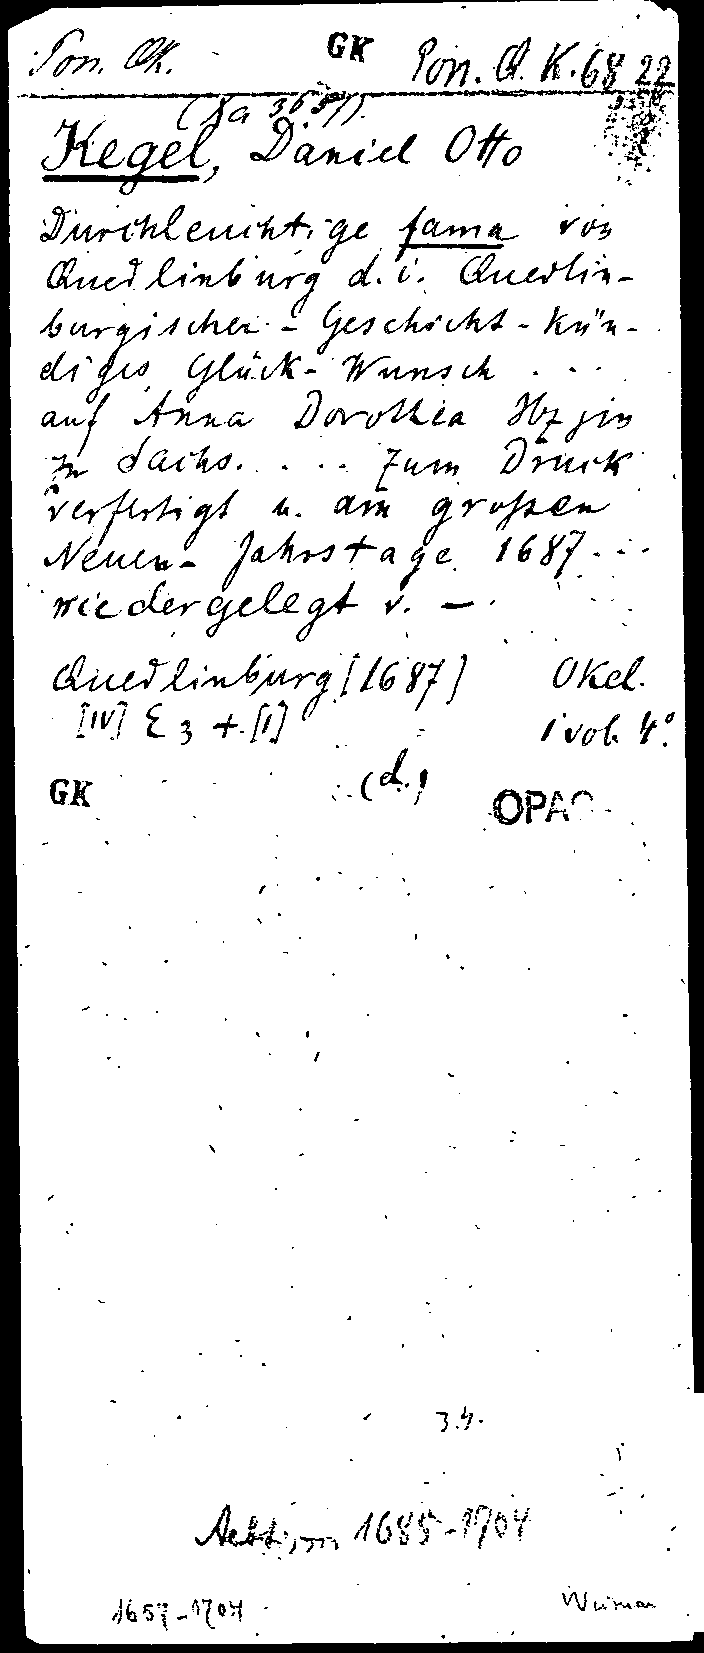 Pon. QK. GK Pon. Q. K. 68 22
(Ya 3657).
Kegel, Daniel Otto
Durchleuchtige fama von
Quedlinburg d. i. Quedlin-
burgischer - Geschicht - kün-
diges Glück- Wunsch . . .
auf Anna Dorothea Hzgin
zu Sachs. . . . . zum Druck
verfertigt u. am großen
Neuen- Jahrstage 1687 . . .
niedergelegt v. —.
Quedlinburg [1687] Okel.
[IV] E 3 + [1] 1 vol. 4°.
GK (d.) OPAC
3.4.
Aebtissin 1685-1704
1657-1704 Weimar